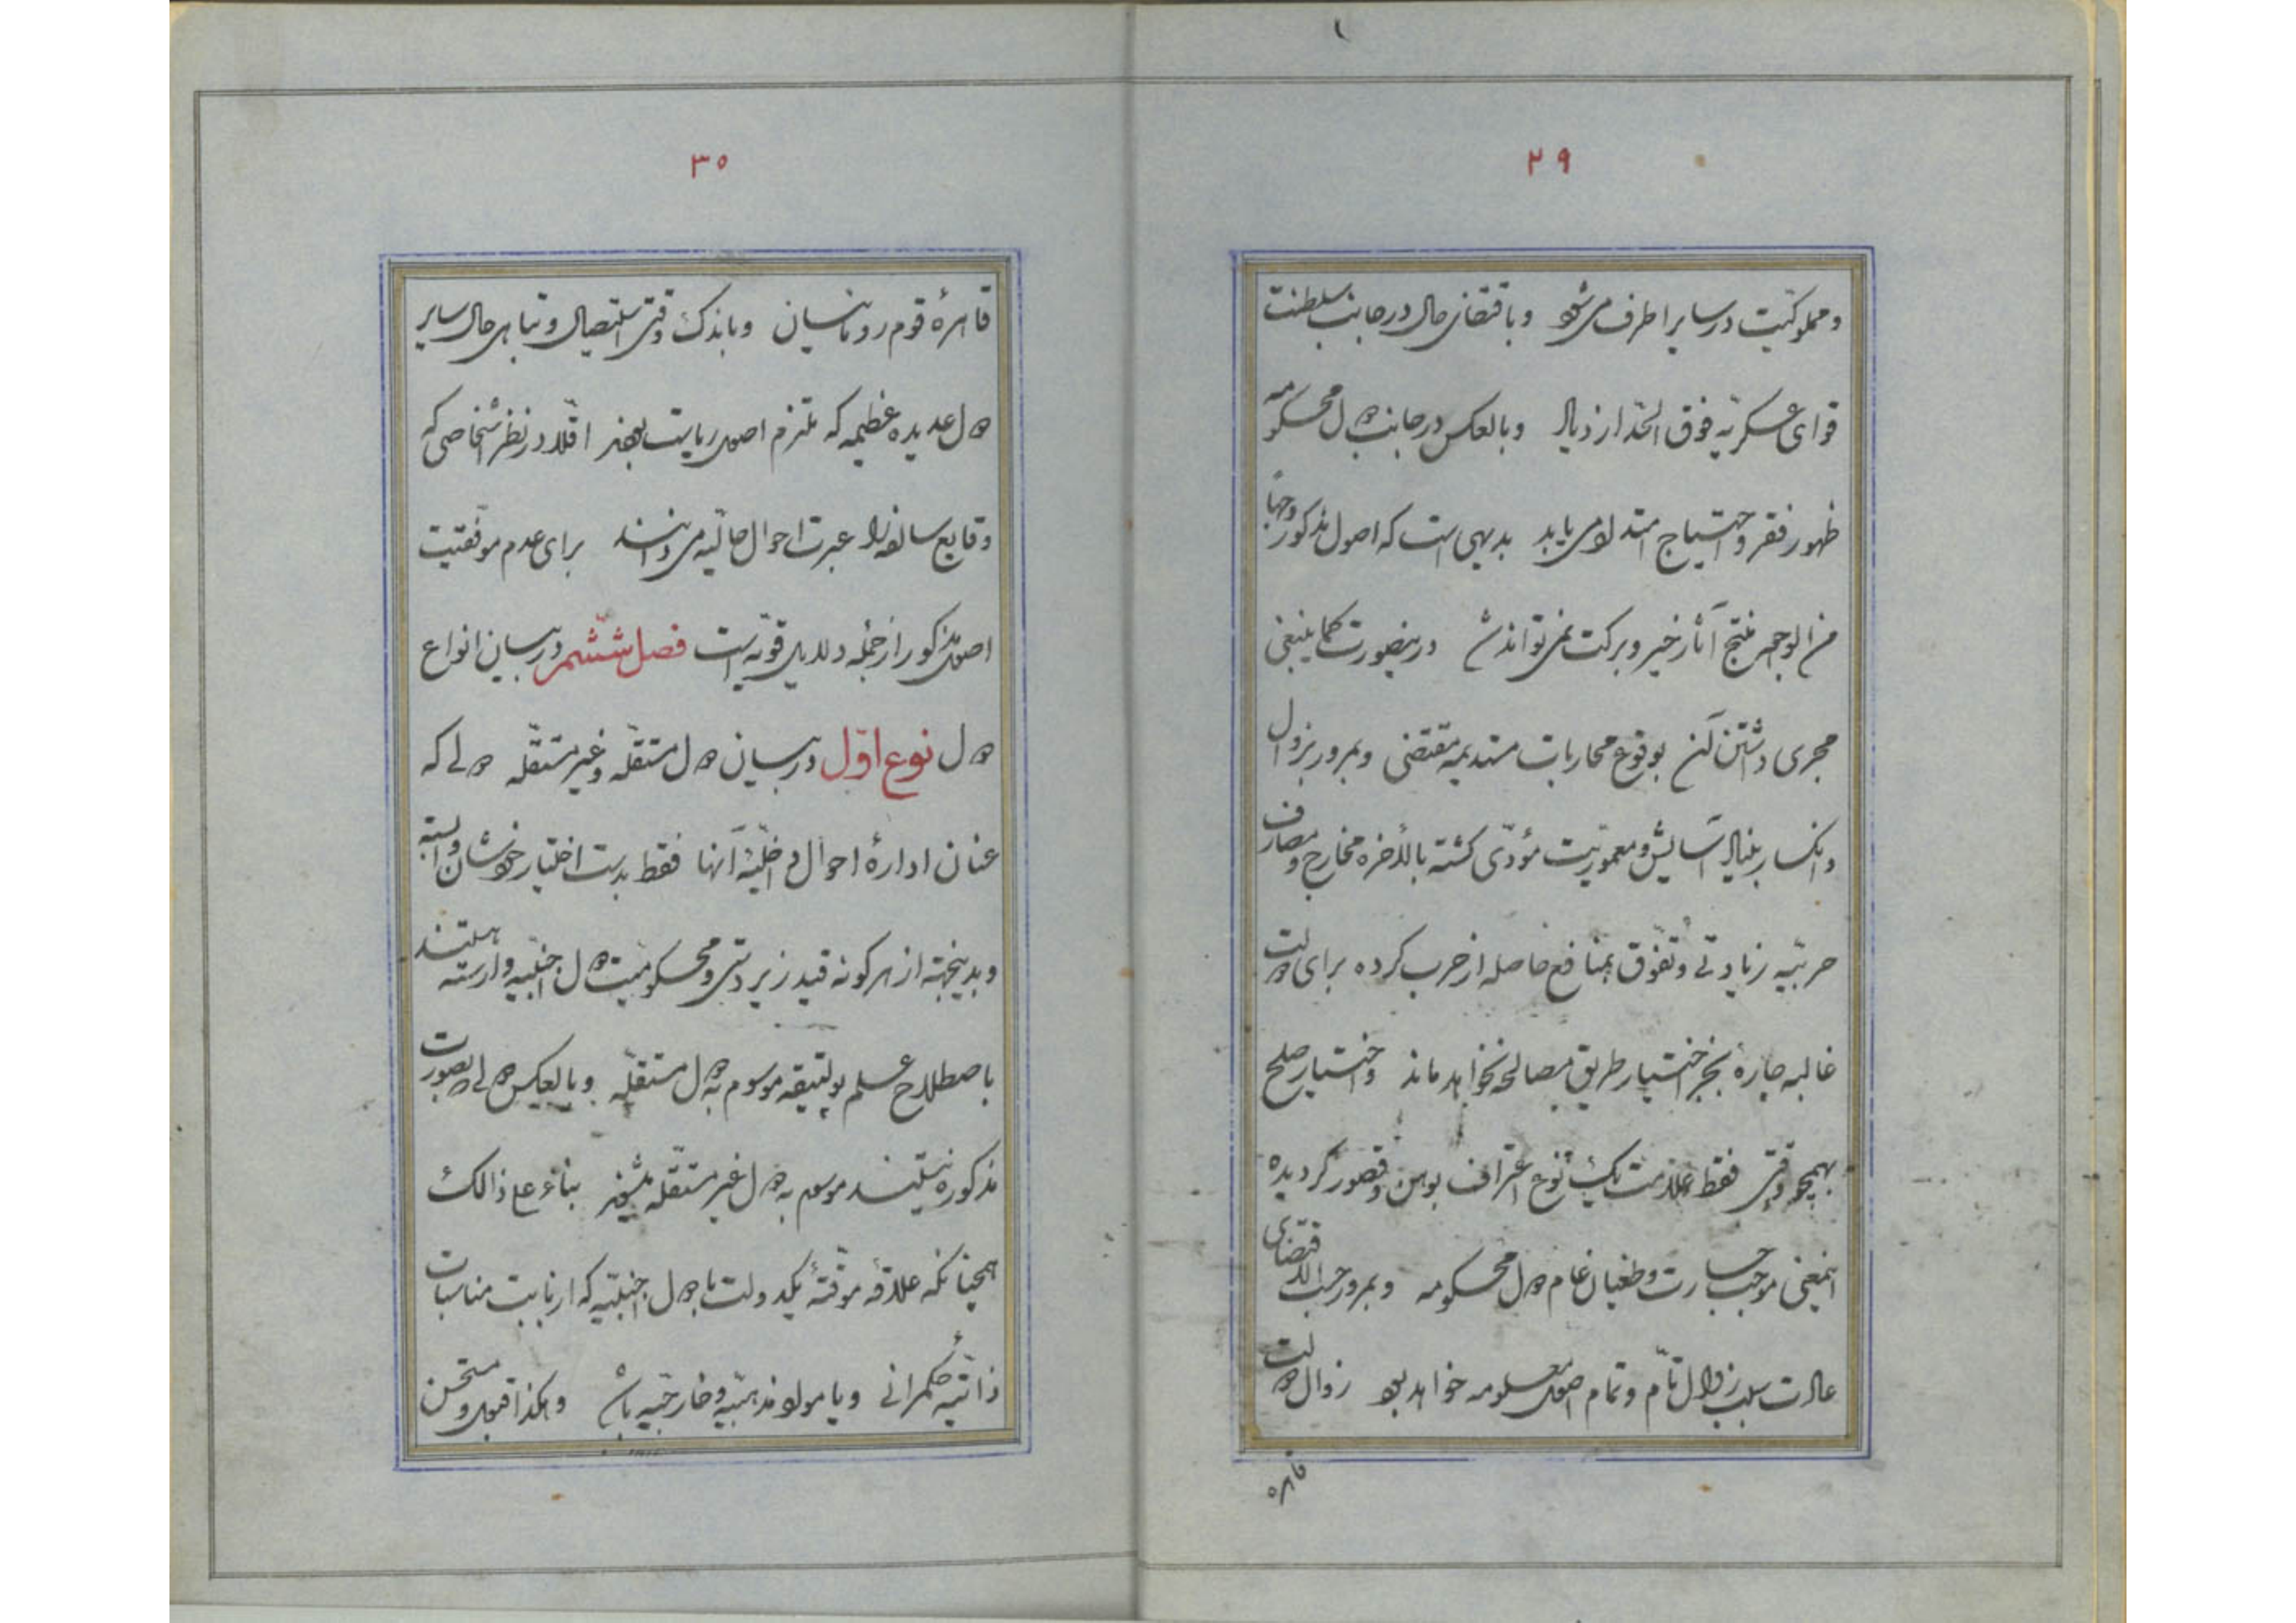 ۲۹
و مملوکیت در سایر اطراف می‌شود و باقتضای حال در جانب سلطنت
قوای عسکریّه فوق الحدّ ازدیاد و بالعکس در جانب دول محکومه
ظهور فقر و احتیاج امتداد می‌یابد بدیهی است که اصول مذکور وجهاً
من الوجوه منتج آثار خیر و برکت نمی‌تواند شد در ینصورت کما ینبغی
مجری داشتن آن بوقوع محاربات مستدیمه مقتضی و بمرور بزوال
و انکسار بنیاد آسایش و معموریت مؤدّی کشته بالأخره مخارج و مصارف
حربیّه زیادتی و تفوّق بمنافع حاصله از حرب کرده برای دولت
غالبه چارهٔ بجز اختیار طریق مصالحه نخواهد ماند و اختیار صلح
بهمچو وقتی فقط علامت یک نوع اعتراف بوهن و قصور کردیده
اینمعنی موجب جسارت و طغیان عام دول محکومه و بمرور حسب الاقتضای
عادت سبب زوال تامّ و تمام اصول معلومه خواهد بود زوال دولت
قاهره
۳۰
قاهرهٔ قوم رومانسیان و باندک وقتی استیصال و تباهی حال سایر
دول عدیده عظیمه که ملتزم اصول ریاست بودند اقلاً در نظر اشخاصی که
وقایع سالفه را عبرت احوال حالیه می‌دانند برای عدم موفقیت
اصول مذکور از جمله دلایل قویّه است فصل ششم در بیان انواع
دول نوع اوّل در بیان دول مستقلّه و غیر مستقلّه دولی که
عنان ادارهٔ احوال داخلیّهٔ آنها فقط بدست اختیار خودشان وابسته
و بدینجهته از هر کونه قید زیر دستی و محکومیت دول اجنبیه وارسته هستند
باصطلاح علم پولتیقه موسوم به دول مستقلّه و بالعکس دولی که بصورت
مذکوره نیستند موسوم به دول غیر مستقلّه میشوند بناءً علی ذالک
همچنانکه علاقهٔ موقّتهٔ یکدولت با دول اجنبیّه که از بابت مناسبات
ذاتیّهٔ حکمرانی و یا مواد مذهبیّه و خارجیّه باشد و هکذا قبول و متحسن